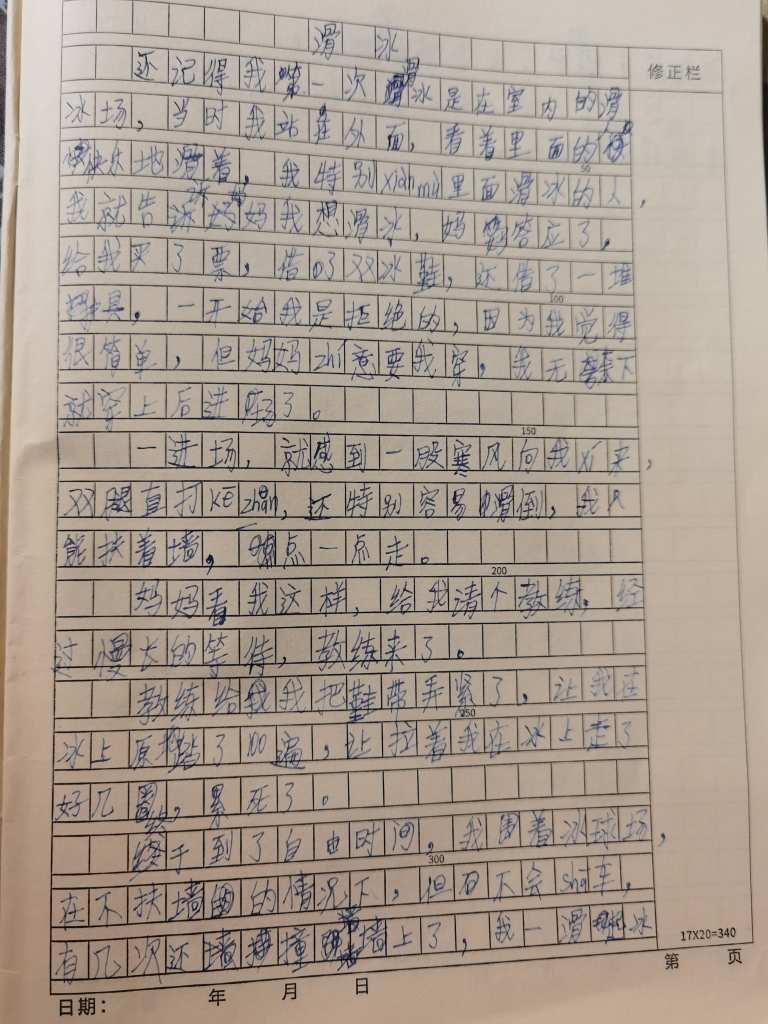 滑冰
修正栏
还记得我第一次滑冰是在室内的滑
冰场，当时我站在外面，看着里面的
快乐地滑着，我特别xiàn mù里面滑冰的人，
我就告诉妈妈我想滑冰，妈答应了，
给我买了票，借了双冰鞋，还借了一堆
50
护具，一开始我是拒绝的，因为我觉得
100
很简单，但妈妈zhí意要我穿，我无奈下
就穿上后进场了。
一进场，就感到一股寒风向我xí来，
150
双腿直打kē zhàn，还特别容易滑倒，我只
能扶着墙，一点一点走。
妈妈看我这样，给我请个教练，经
200
过漫长的等待，教练来了。
教练给我我把鞋带弄紧了，让我在
冰上原地踏了100遍，让拉着我在冰上走了
250
好几圈，累死了。
终于到了自由时间，我围着冰球场，
在不扶墙的的情况下，但不会shā车，
300
有几次还撞墙上了，我一滑冰
17X20=340
日期： 年 月 日
第 页